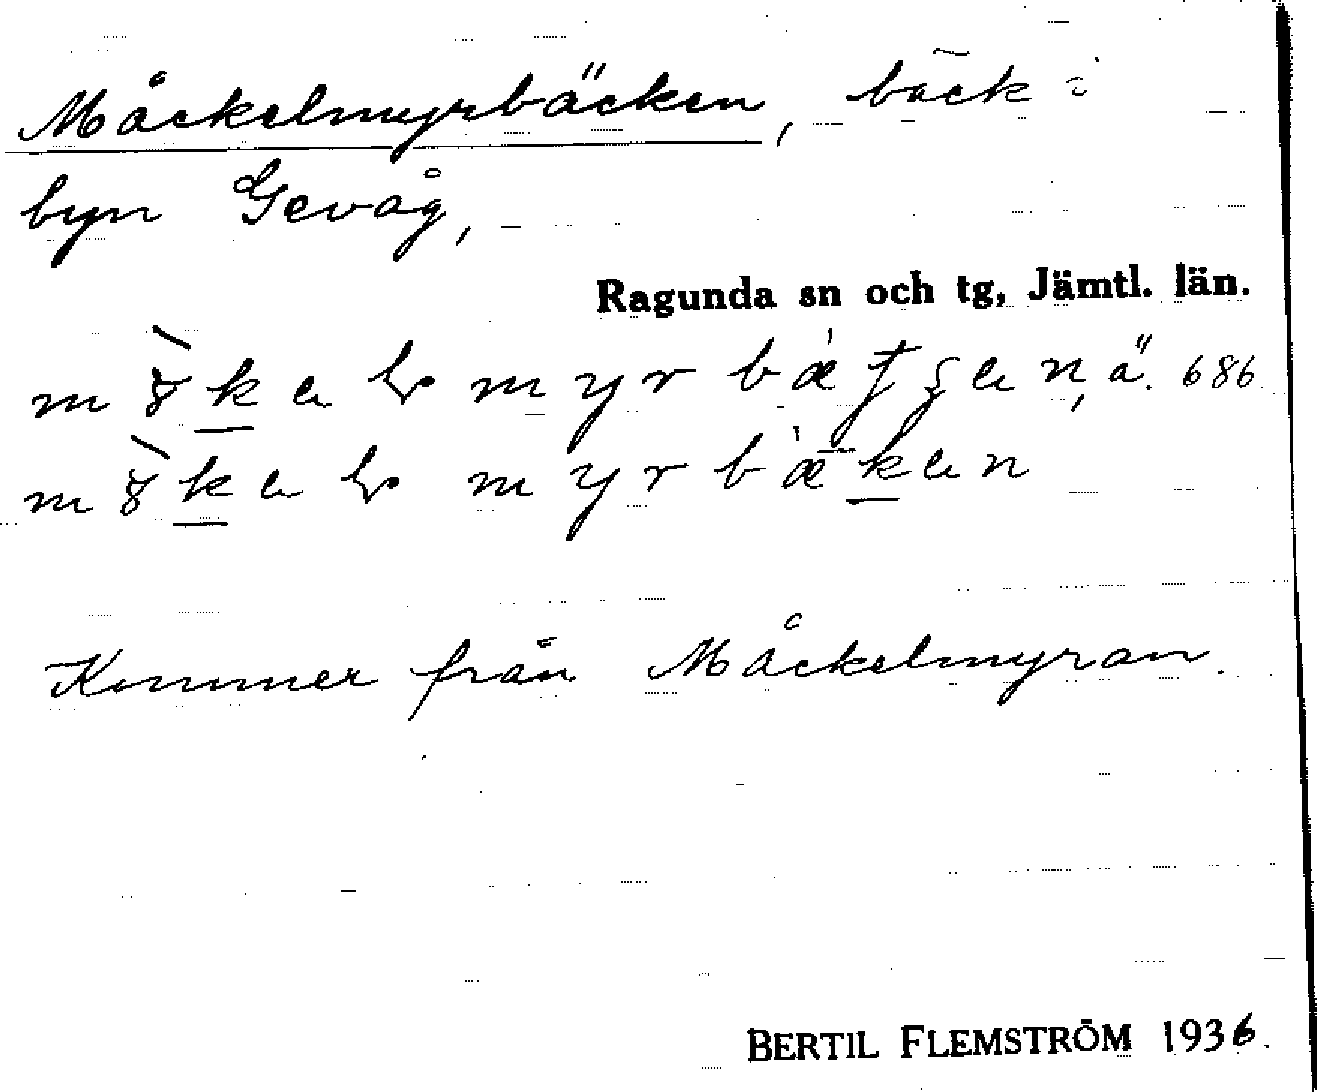 Måckelmyrbäcken, bäck i
byn Gevåg,
Ragunda sn och tg, Jämtl. län.
ä. 686
Kommer från Måckelmyran.
BERTIL FLEMSTRÖM 1936.